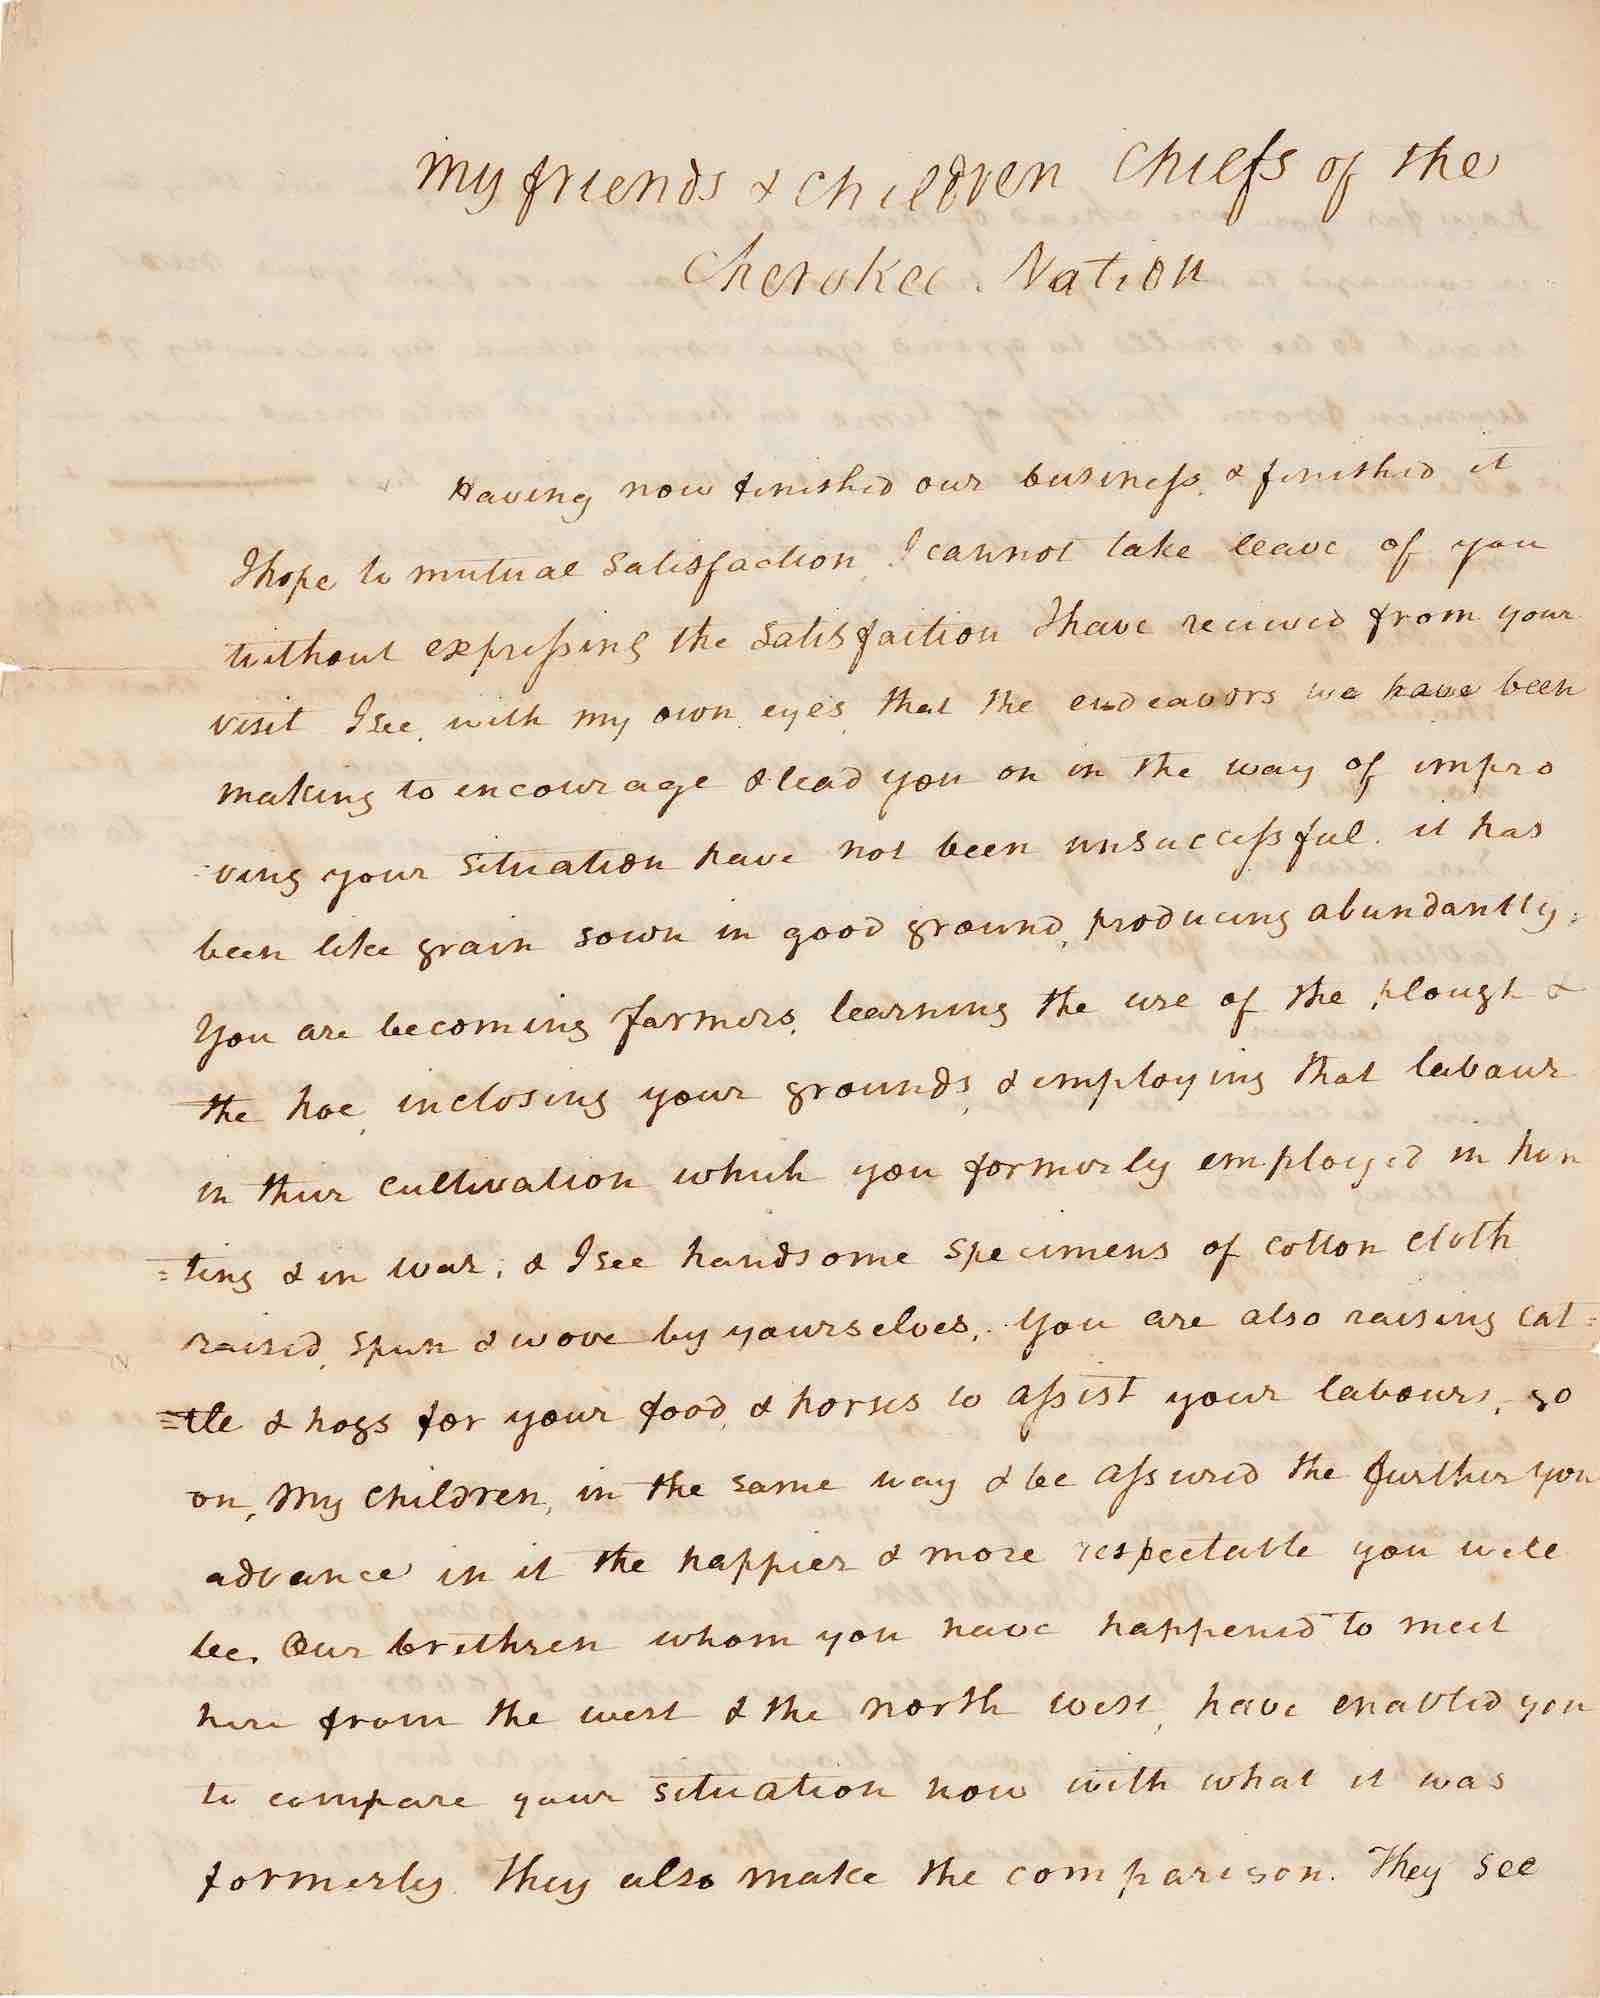 My friends & children Chiefs of the
Cherokee Nation
Having now finished our business, & finished it
I hope to mutual satisfaction, I cannot take leave of you
without expressing the satisfaction I have recieved from your
visit I see, with my own eyes, that the endeavors we have been
making to encourage & lead you on in the way of impro
-ving your situation have not been unsuccessful. it has
been like grain sown in good ground, producing abundantly.
You are becoming farmers, learning the use of the plough &
the hoe, inclosing your grounds, & employing that labour
in their cultivation which you formerly employed in hun
=ting & in war; & I see handsome specimens of cotton cloth
raised, spun & wove by yourselves. You are also raising cat=
=tle & hogs for your food, & horses to assist your labours, go
on, My children, in the same way & be assured the further you
advance in it the happier & more respectable you will
be. Our brethren whom you have happened to meet
here from the west & the north west, have enabled you
to compare your situation now with what it was
formerly. They also make the comparison. They see